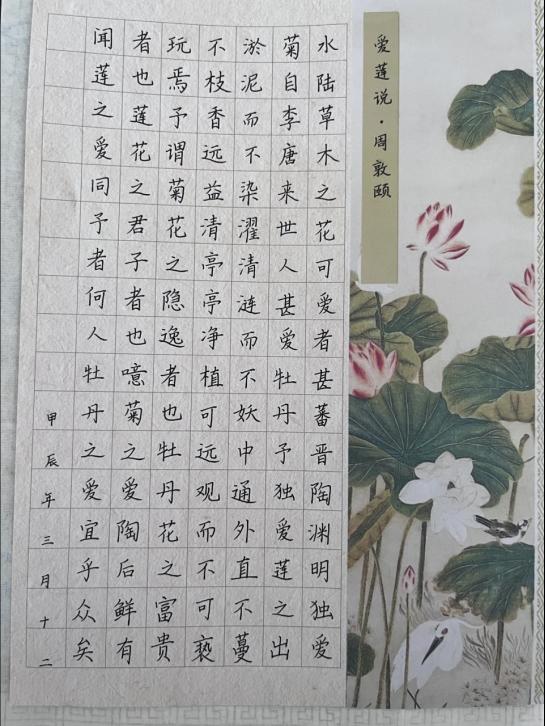 爱莲说·周敦颐
水陆草木之花可爱者甚蕃晋陶渊明独爱
菊自李唐来世人甚爱牡丹予独爱莲之出
淤泥而不染濯清涟而不妖中通外直不蔓
不枝香远益清亭亭净植可远观而不可亵
玩焉予谓菊花之隐逸者也牡丹花之富贵
者也莲花之君子者也噫菊之爱陶后鲜有
闻莲之爱同予者何人牡丹之爱宜乎众矣
甲辰年三月十二